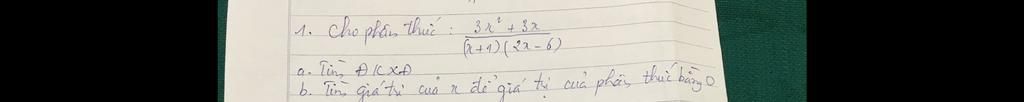 1. Cho phân thức : (3x² + 3x)/((x+1)(2x-6))
a. Tìm ĐKXĐ
b. Tìm giá trị của x để giá trị của phân thức bằng 0